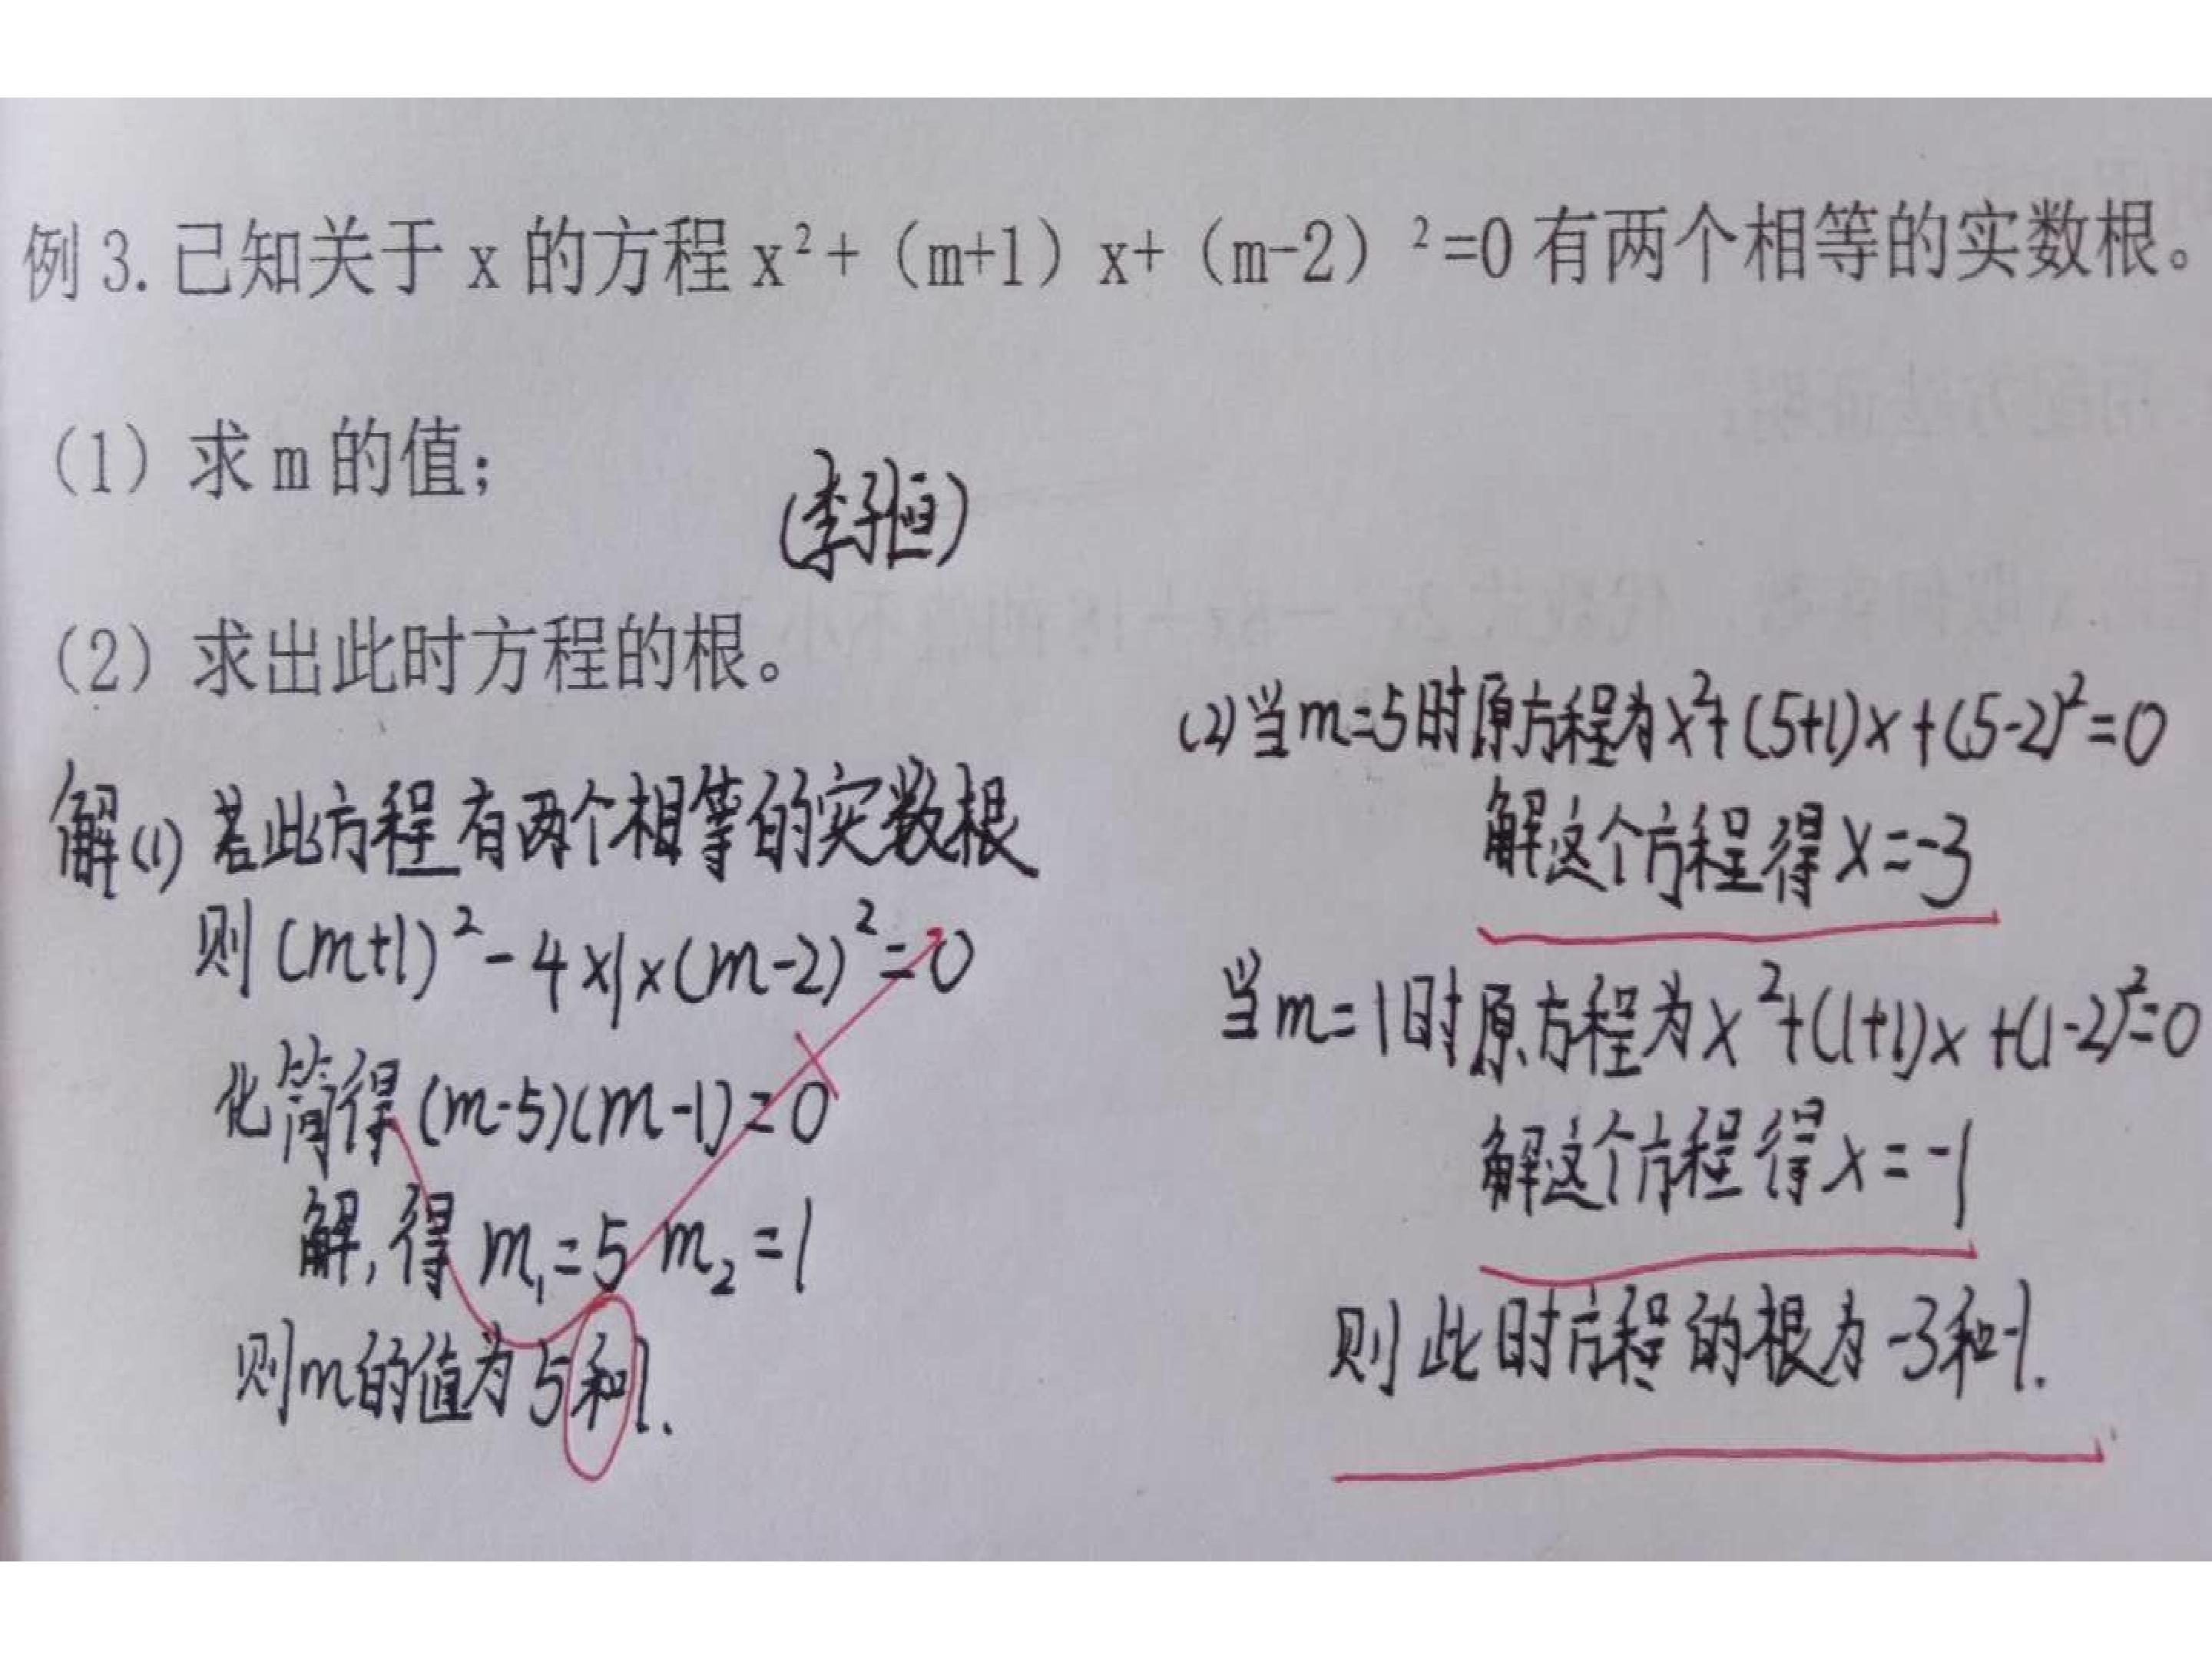 例3.已知关于x的方程x²+（m+1）x+（m-2）²=0有两个相等的实数根。
（1）求m的值；
(李子恒)
（2）求出此时方程的根。
解(1) 若此方程有两个相等的实数根
则 (m+1)²-4×1×(m-2)²=0
化简得 (m-5)(m-1)=0
解,得 m₁=5 m₂=1
则m的值为5和1.
(2)当m=5时原方程为x²+(5+1)x+(5-2)²=0
解这个方程得x=-3
当m=1时原方程为x²+(1+1)x+(1-2)²=0
解这个方程得x=-1
则此时方程的根为-3和-1.